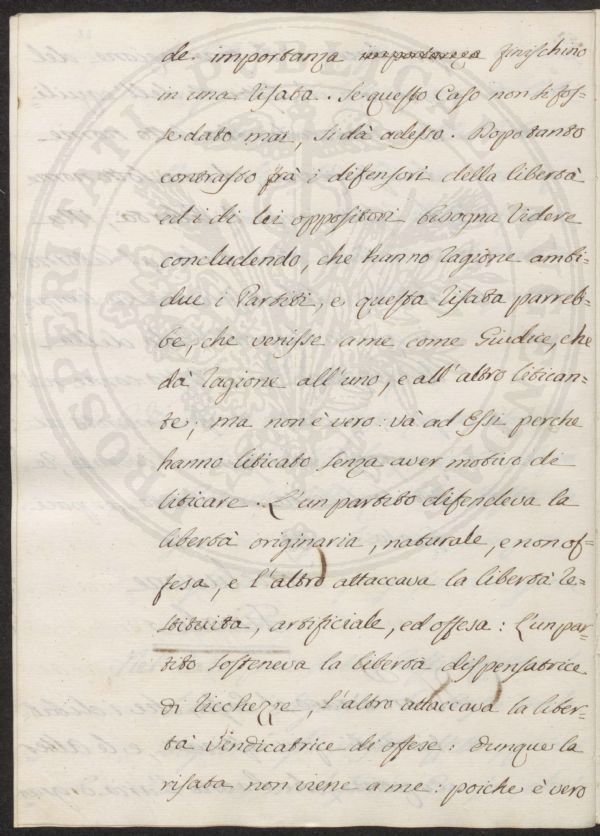 de importanza importanza finischino
in una risata. Se questo Caso non si fos=
se dato mai, si dà adesso. Dopo tanto
contrasto frà i difensori della libertà
ed i di lei oppositori bisogna ridere
concludendo, che hanno ragione ambi=
due i Partiti, e questa risata parreb=
be, che venisse a me come Giudice, che
dà ragione all'uno, e all'altro litican=
te; ma non è vero: và ad Essi perche
hanno liticato senza aver motivo di
liticare. L'un partito difendeva la
libertà originaria, naturale, e non of=
fesa, e l'altro attaccava la libertà re=
stituita, artificiale, ed offesa: L'un par=
tito sosteneva la libertà dispensatrice
di ricchezze, l'altro attaccava la liber=
tà vindicatrice di offese: dunque la
risata non viene a me: poiche è vero